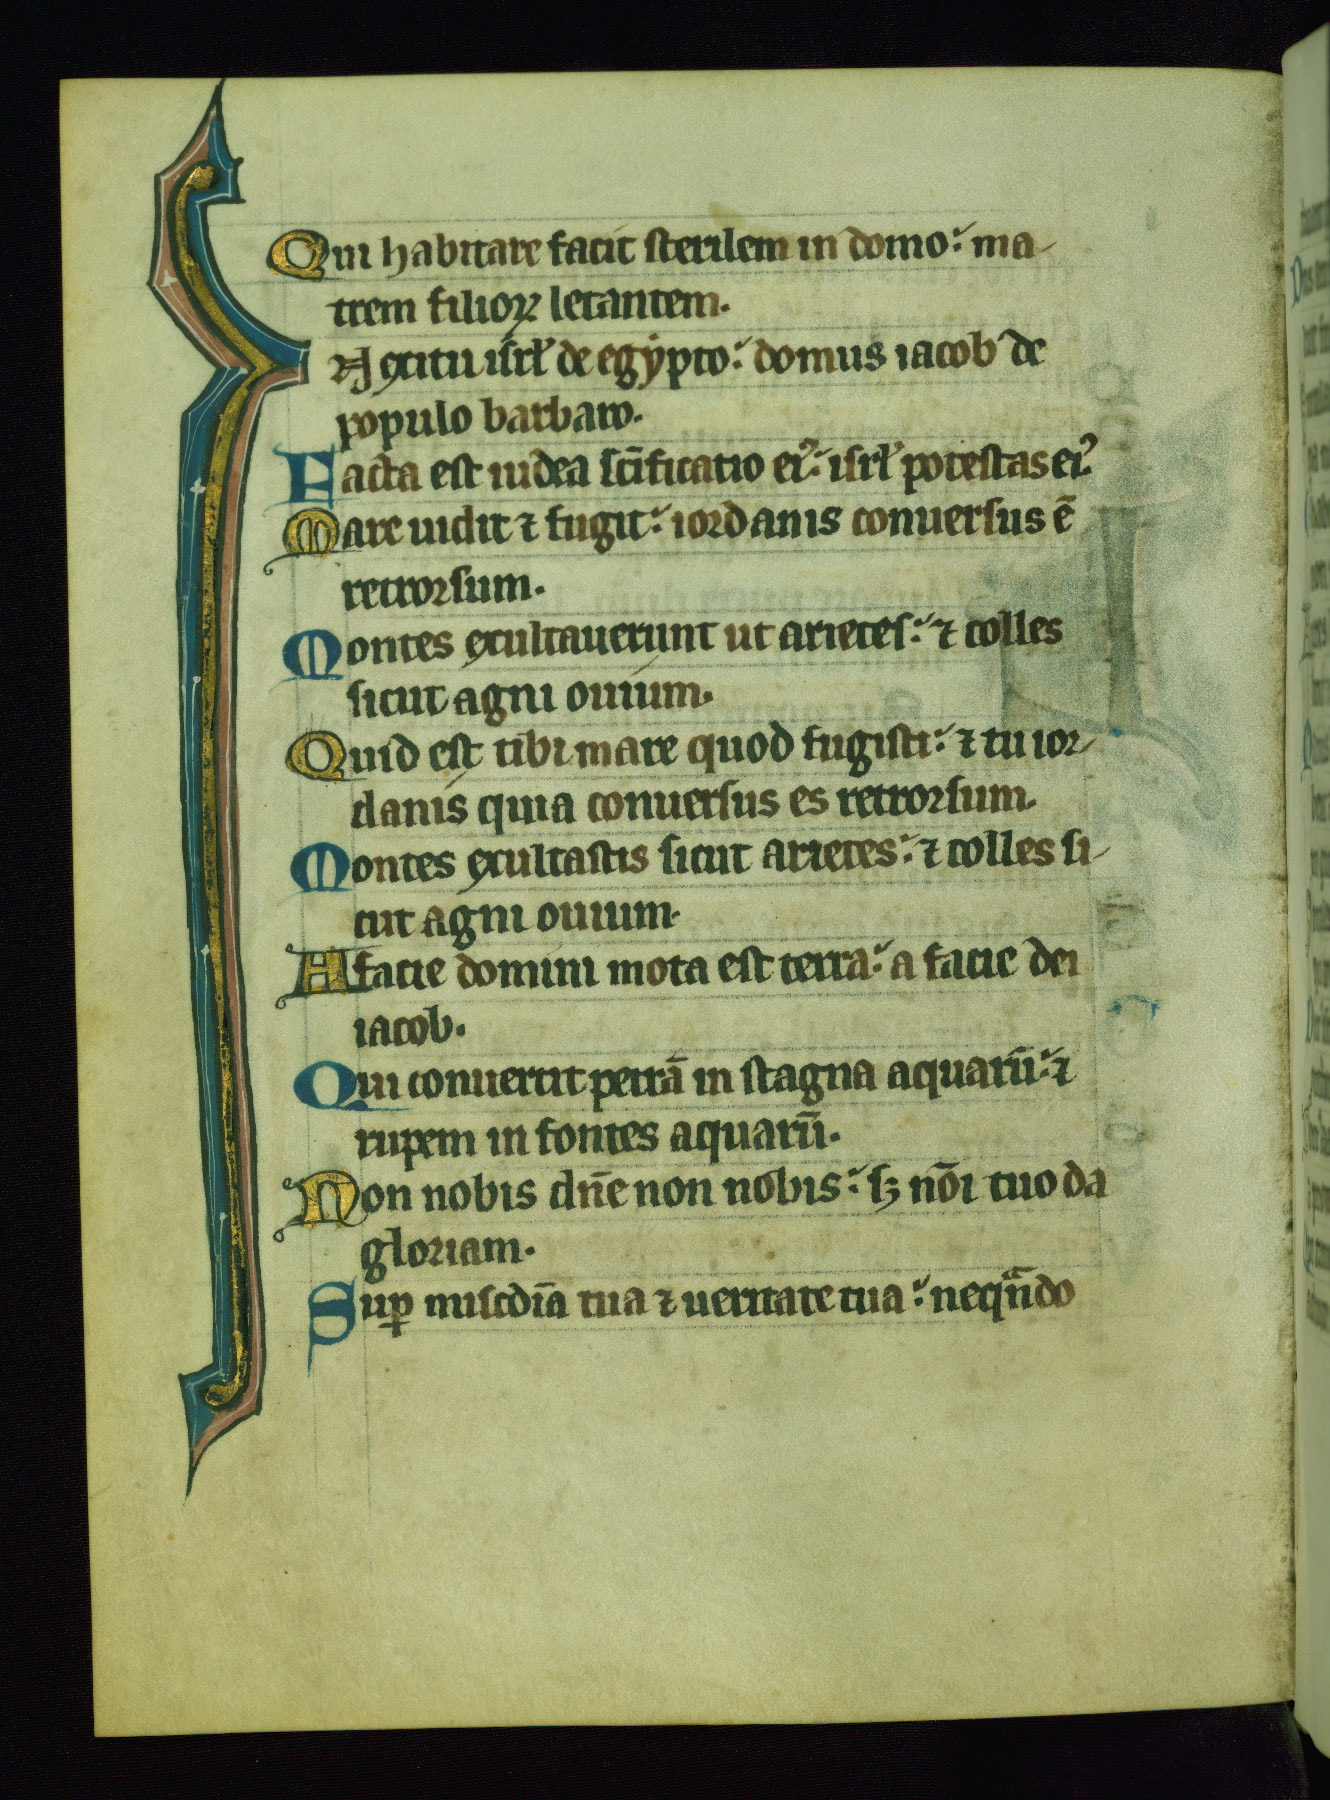 Qui habitare facit sterilem in domo: ma-
trem filioꝝ letantem.
In exitu isrł de egẏpto: domus iacob de
populo barbaro.
Facta est iudea sc̄ificatio eiꝰ: isrł potestas eiꝰ.
Mare uidit ⁊ fugit: iordanis conuersus ē
retrorsum.
Montes exultauerunt ut arietes: ⁊ colles
sicut agni ouium.
Quid est tibi mare quod fugisti: ⁊ tu ior-
danis quia conuersus es retrorsum.
Montes exultastis sicut arietes: ⁊ colles si-
cut agni ouium.
A facie domini mota est terra: a facie dei
iacob.
Qui conuertit petrā in stagna aquarū: ⁊
rupem in fontes aquarū.
Non nobis dn̄e non nobis: sꝫ nōi tuo da
gloriam.
Suꝑ misc̄dia tua ⁊ ueritate tua: neqn̄do